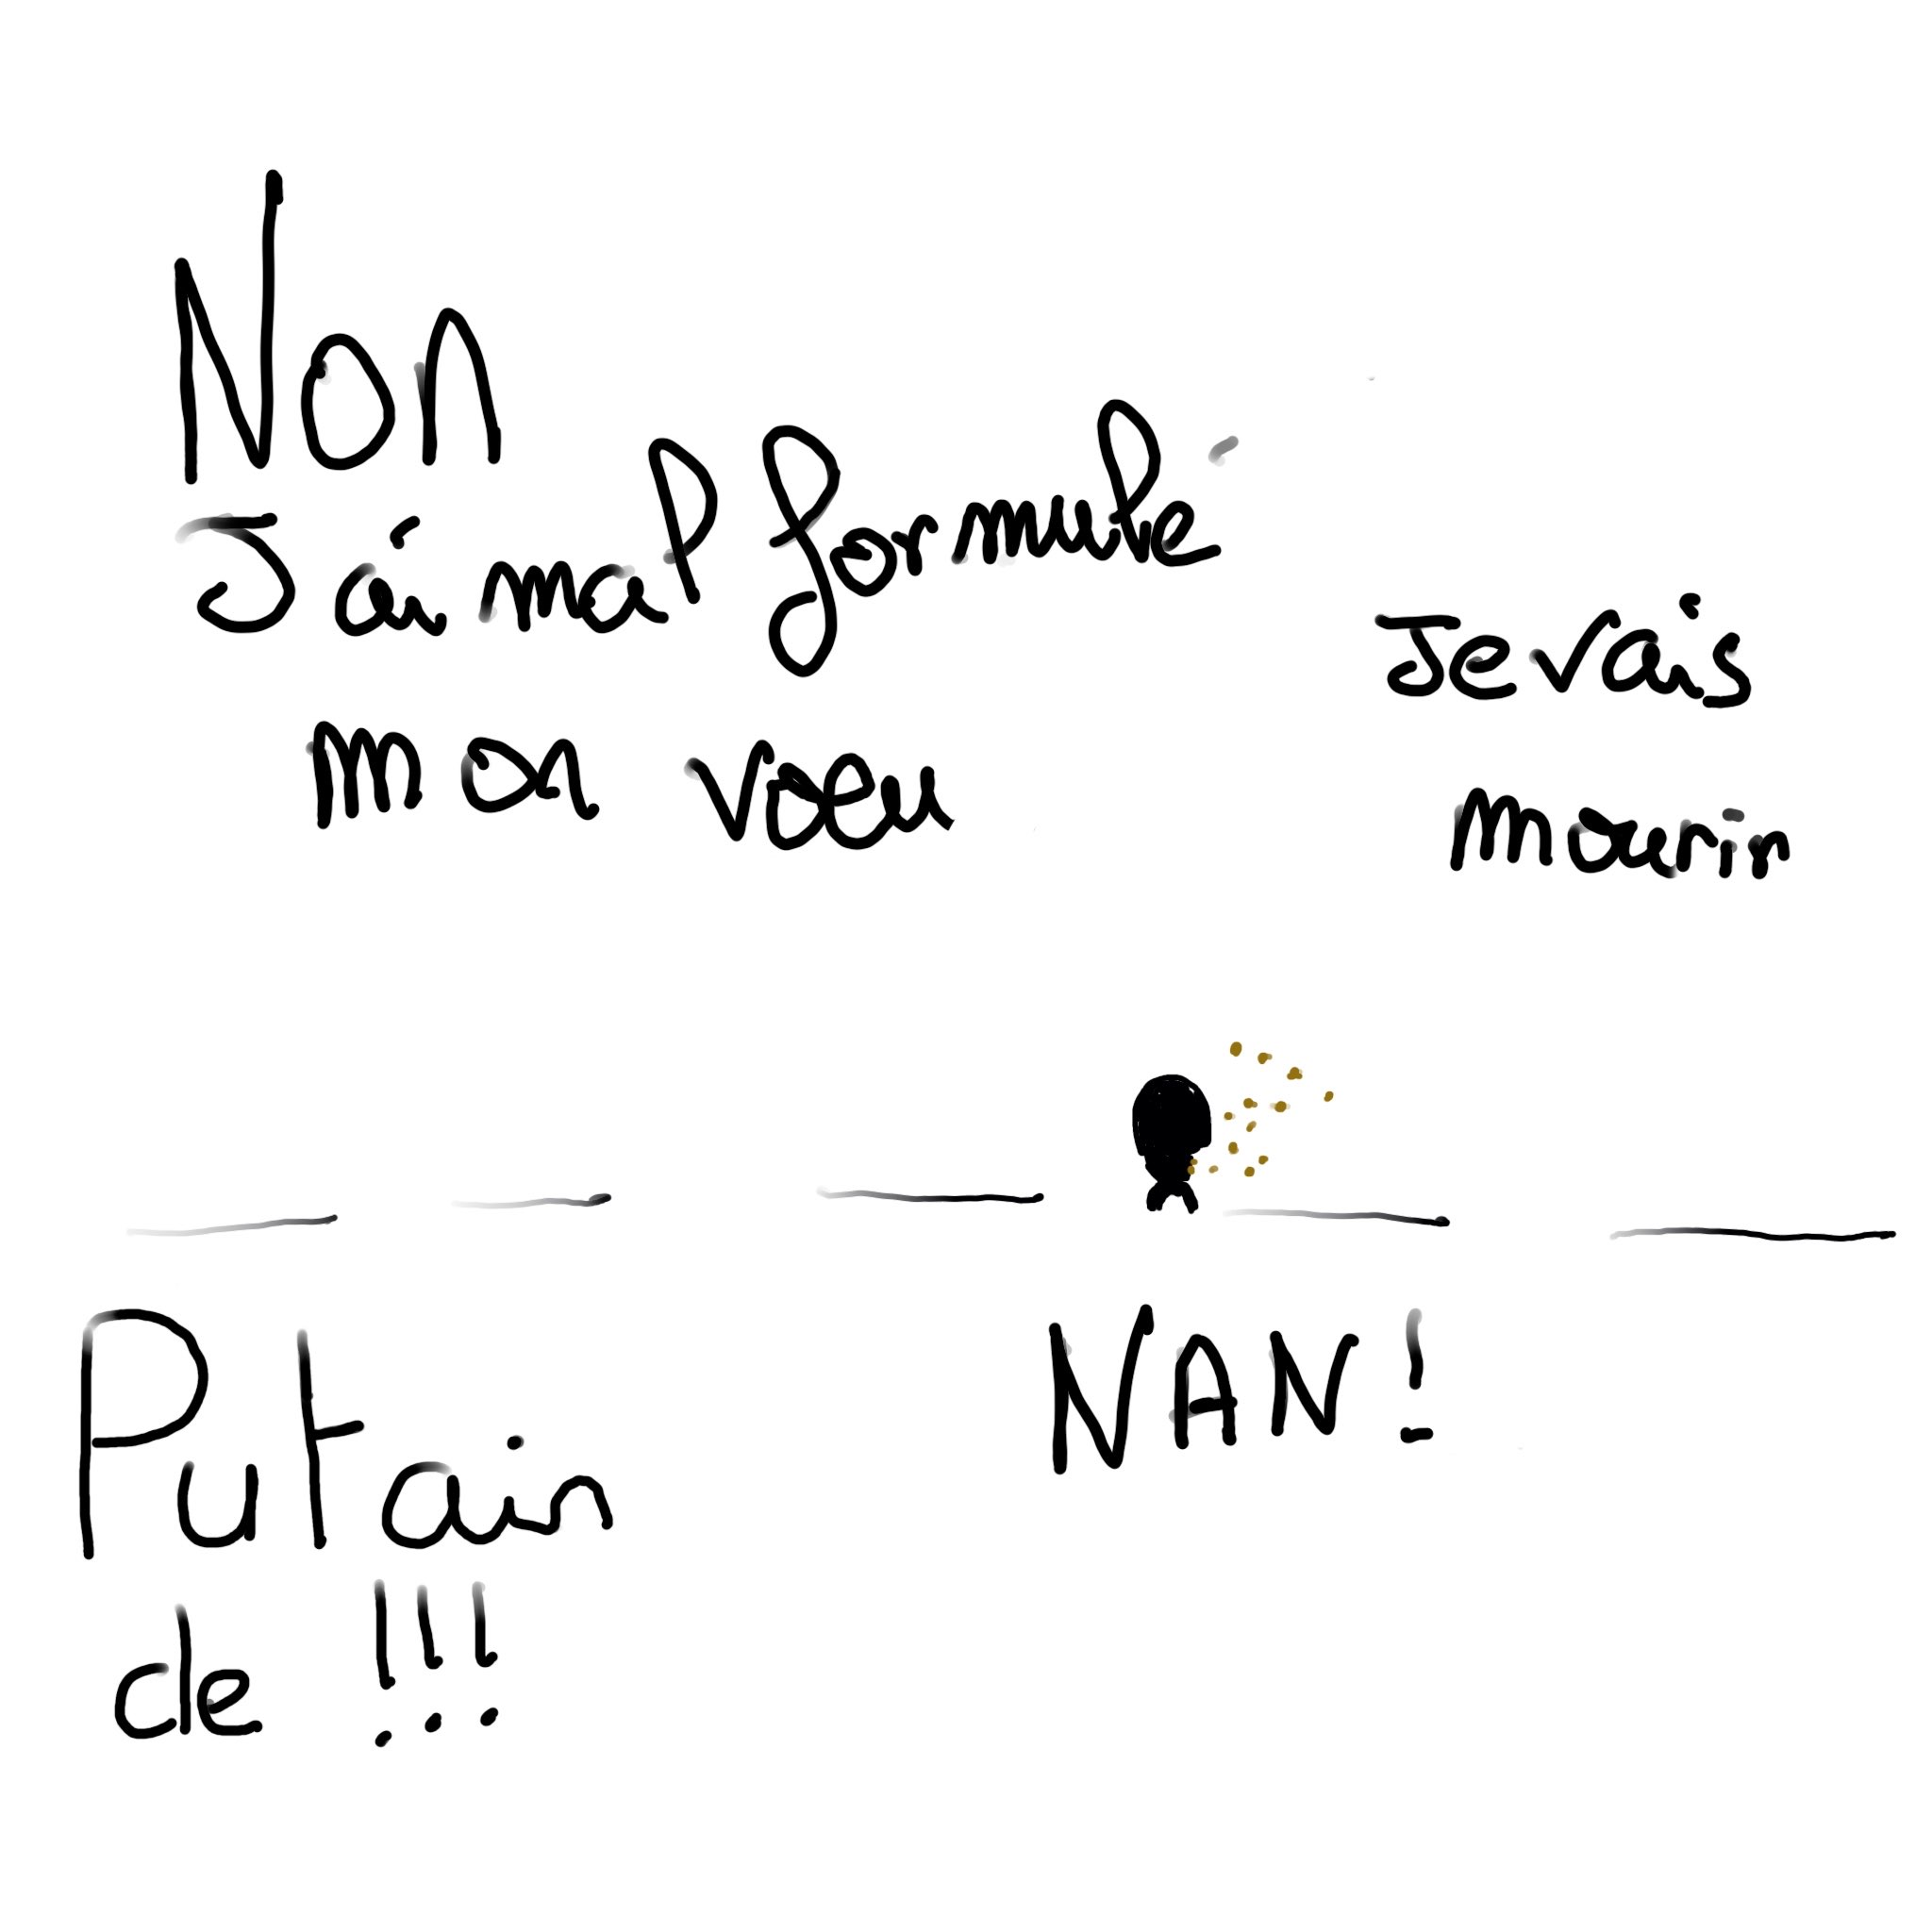 Non
J ai mal formulé
mon voeu
Je vais
Mourir
Putain
de !!!
NAN!